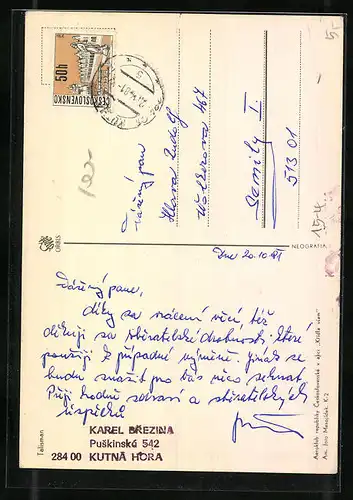 50h
ČESKOSLOVENSKO
Vážený pan
Hlava Rudolf
Wolkerova 467
Semily I.
513 01
154.
ORBIS
NEOGRAFIA
Dne 20.10.81
Vážený pane,
díky za vrácení věcí, též
děkuji za sběratelské drobnosti které
použiji k případné výměně. Jinak se
budu snažit pro Vás něco sehnat.
Přeji hodně zdraví a sběratelských
úspěchů
KAREL BŘEZINA
Puškinská 542
284 00 KUTNÁ HORA
Talisman
Aeroklub republiky Československé